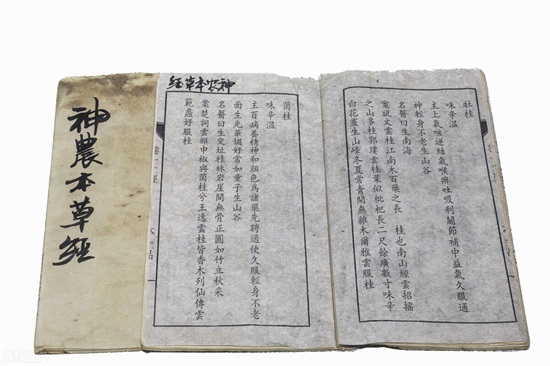 神農本草經
神农本草經
牡桂
味辛溫
主上氣咳逆結氣喉痺吐吸利關節補中益氣久服通
神輕身不老生山谷
名醫曰生南海
案說文雲桂江南木百藥之長 桂也南山經雲招搖
之山多桂郭璞雲葉似枇杷長二尺餘廣數寸味辛
白花叢生山峰冬夏常青間無雜木爾雅雲服桂
菌桂
味辛溫
主百病養精神和顏色為諸藥先聘通使久服輕身不老
面生光華媚好常如童子生山谷
名醫曰生交址桂林岩崖間無骨正圓如竹立秋采
案楚詞雲雜申椒與菌桂兮王逸雲桂皆香木列仙傳雲
範蠡好服桂